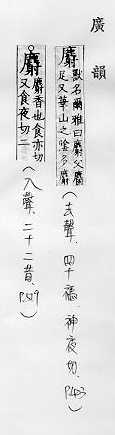 廣韻
麝 獸名爾雅曰麝父麕
足又華山之陰多麝
(去聲、四十禡、神夜切、P.423)
麝 麝香也食亦切
又食夜切二
(入聲、二十二昔、P.519)